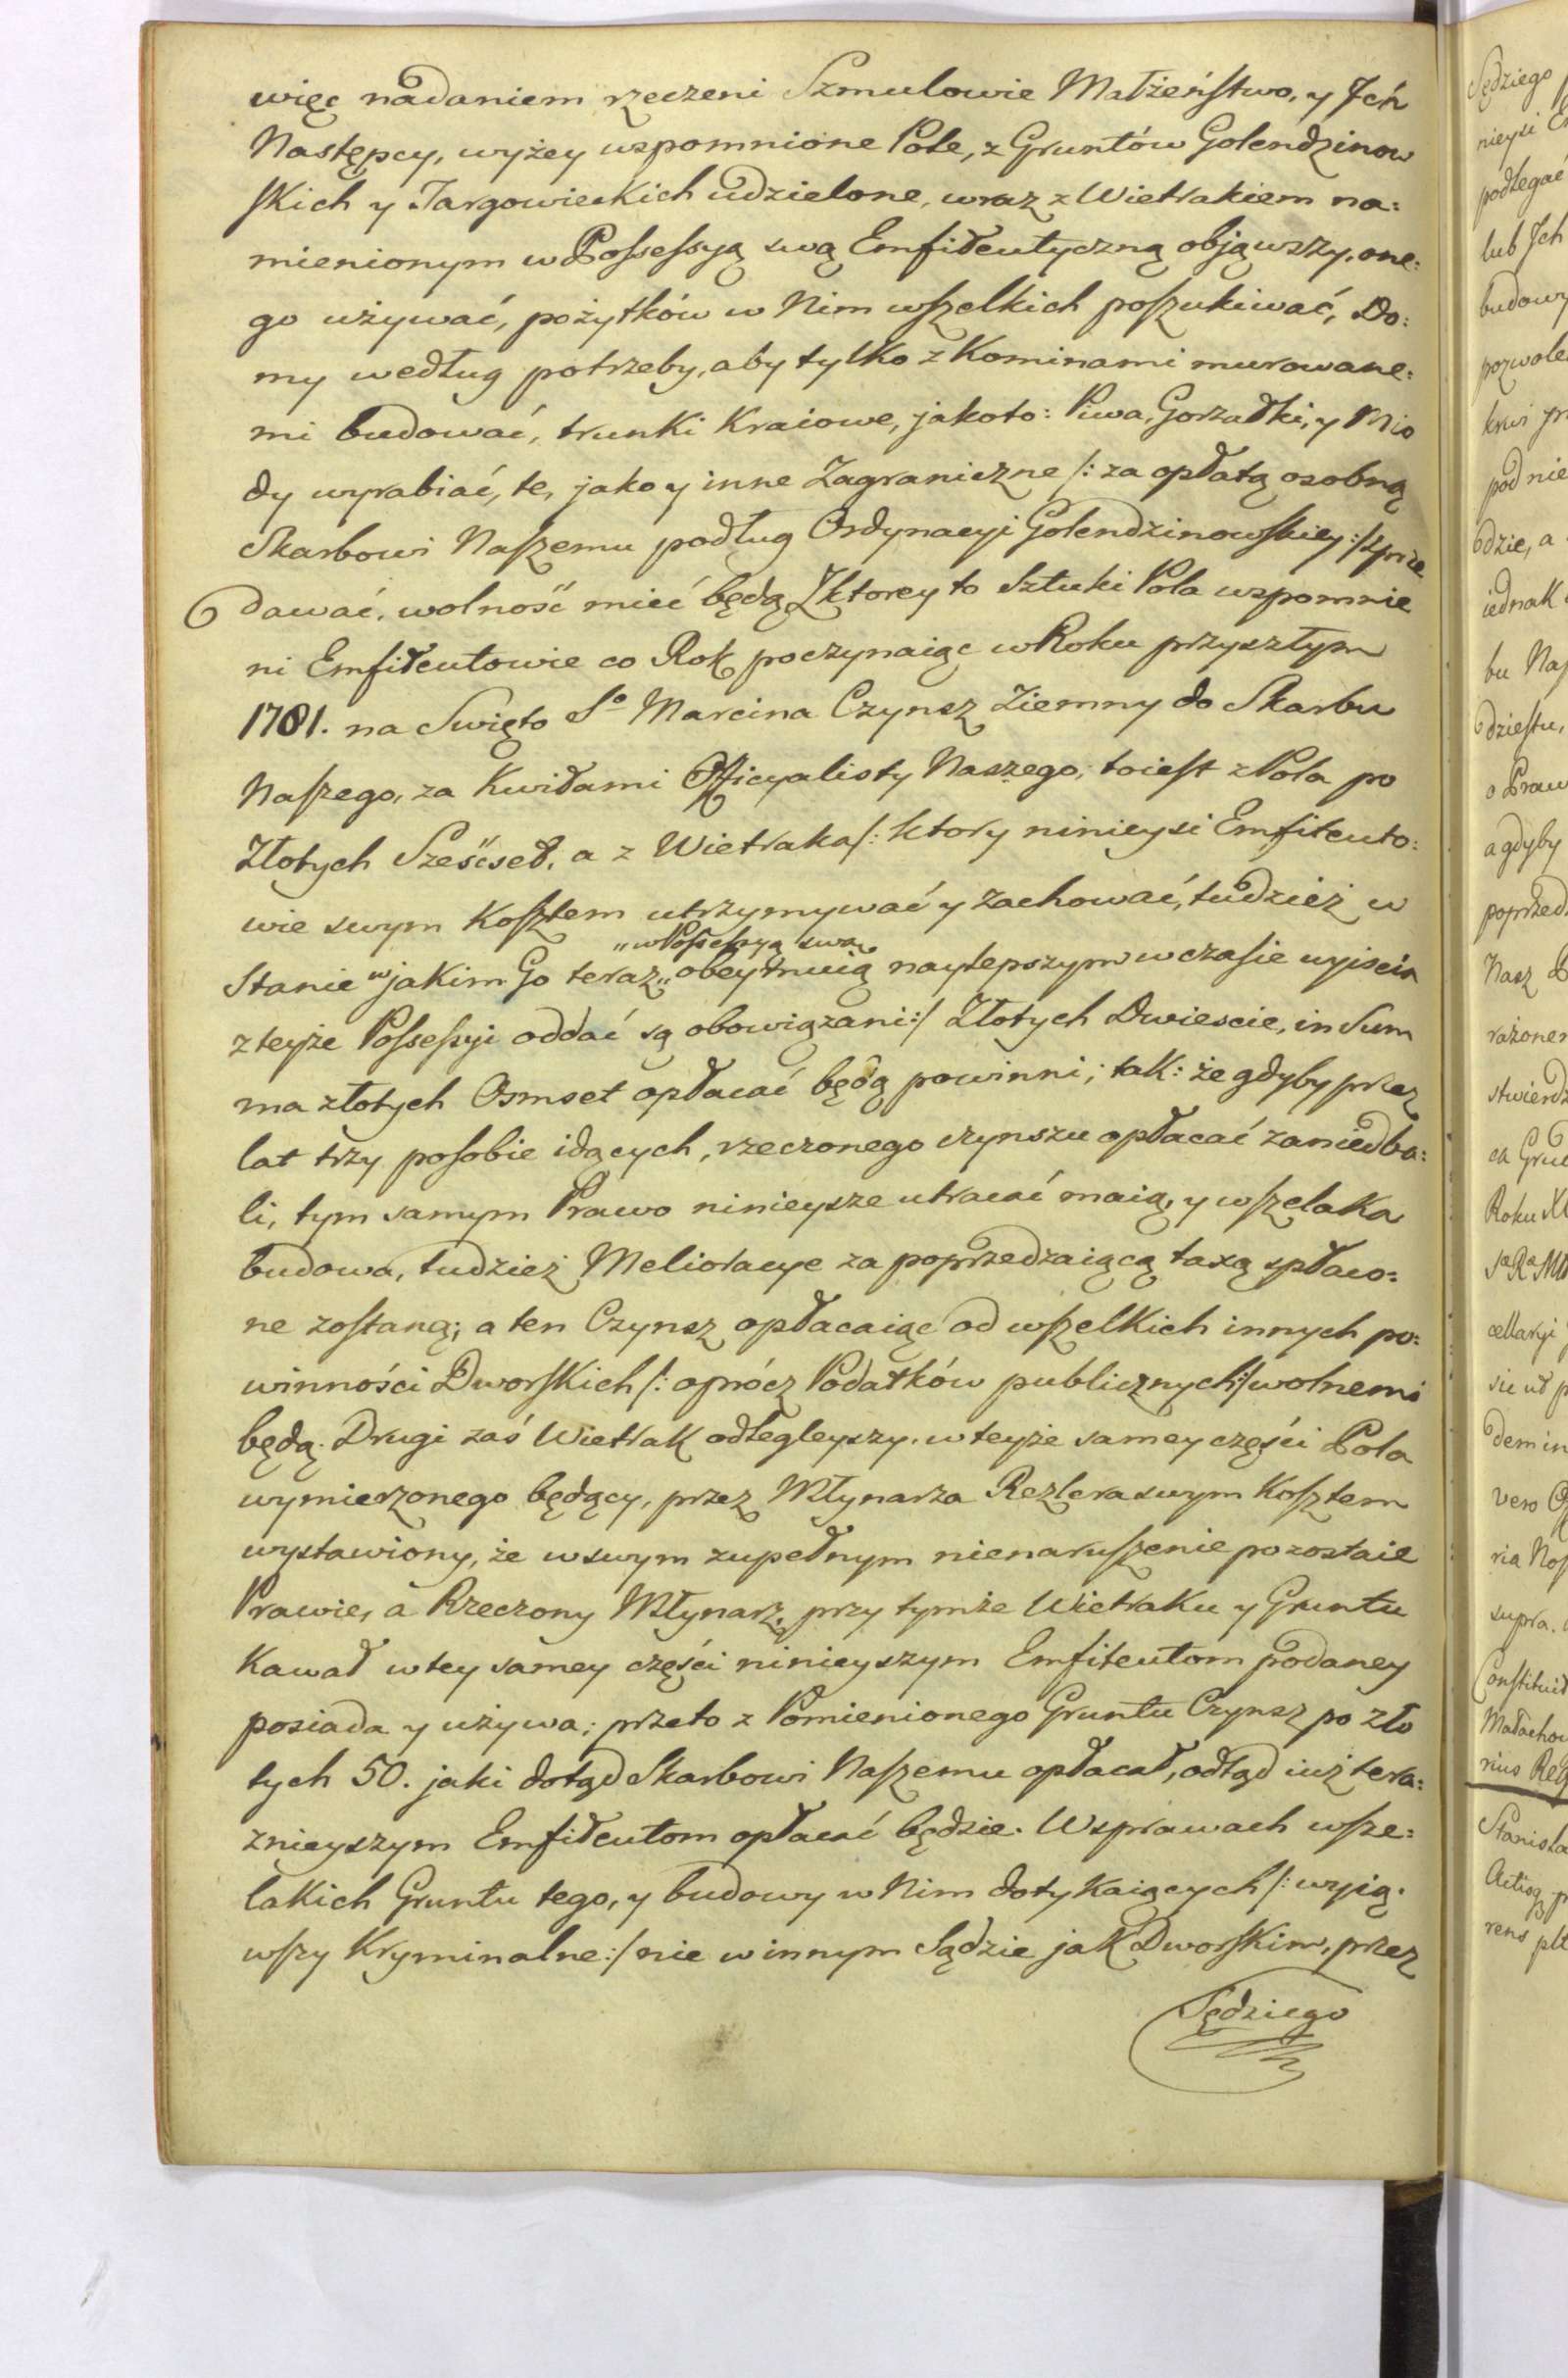 więc nadaniem rzeczeni Szmulowie Małżeństwo, y Jch
Następcy, wyżey wspomnione Pole, z Gruntów Golendzinow
skich y Targowieckich udzielone, wraz z Wietrakiem na:
mienionym w Possessyą swą Emfiteutyczną objąwszy, one:
go używać, pożytków w Nim wszelkich poszukiwać, Do:
my według potrzeby, aby tylko z Kominami murowane:
mi budować, trunki Kraiowe, jakoto: Piwa, Gorzałki, y Mio
dy wyrabiać, te, jako y inne Zagraniczne /: za opłatą osobną
Skarbowi Naszemu podług Ordynacyi Golendzinowskiey :/ sprze
dawać, wolność mieć będą. Zktorey to Sztuki Pola wspomnie
ni Emfiteutowie co Rok poczynaiąc w Roku przyszłym
1781. na Swięto Sº Marcina Czynsz Ziemny do Skarbu
Naszego, za Kwitami Officyalisty Naszego, toiest z Pola po
Złotych Sześćset, a z Wietraka /: ktory ninieysi Emfiteuto:
wie swym Kosztem utrzymywać y zachować, tudzież w
Stanie w jakim Go teraz „w Possessyą swą„ obeymuią naylepszym w czasie wyjscia
z teyże Possessyi oddać są obowiązani :/ Złotych Dwiescie, in Sum
ma złotych Osmset opłacać będą powinni; tak: że gdyby przez
lat trzy posobie idących, rzeczonego czynszu opłacać zaniedba:
li, tym samym Prawo ninieysze utracać maią, y wszelaka
budowa, tudzież Melioracye za poprzedzaiącą taxą spłaco:
ne zostaną; a ten Czynsz opłacaiąc od wszelkich innych po:
winności Dworskich /: oprócz Podatków publicznych :/ wolnemi
będą. Drugi zaś Wietrak odlegleyszy, w teyże samey części Pola
wymierzonego będący, przez Młynarza Rezlera swym Kosztem
wystawiony, że w swym zupełnym nienaruszenie pozostaie
Prawie, a Rzeczony Młynarz, przy tymże Wietraku y Gruntu
Kawał w tey samey części ninieyszym Emfiteutom podaney
posiada y używa; przeto z Pomienionego Gruntu Czynsz po Zło
tych 50. jaki dotąd Skarbowi Naszemu opłacał, odtąd iuż tera:
znieyszym Emfiteutom opłacać będzie. W sprawach wsze:
lakich Gruntu tego, y budowy w Nim dotykaiących /: wyią:
wszy Kryminalne :/ nie w innym Sądzie jak Dworskim, przez
Sędziego
Sędziego
nieysi
podlegać
lub Jch
budowy
krwi
pod nie
dzie, a
iednak
bu
dziestu,
o Praw
a gdyby
Nasz
Roku
cellaryi
dem in
vero
supra.
rius Reg
rens